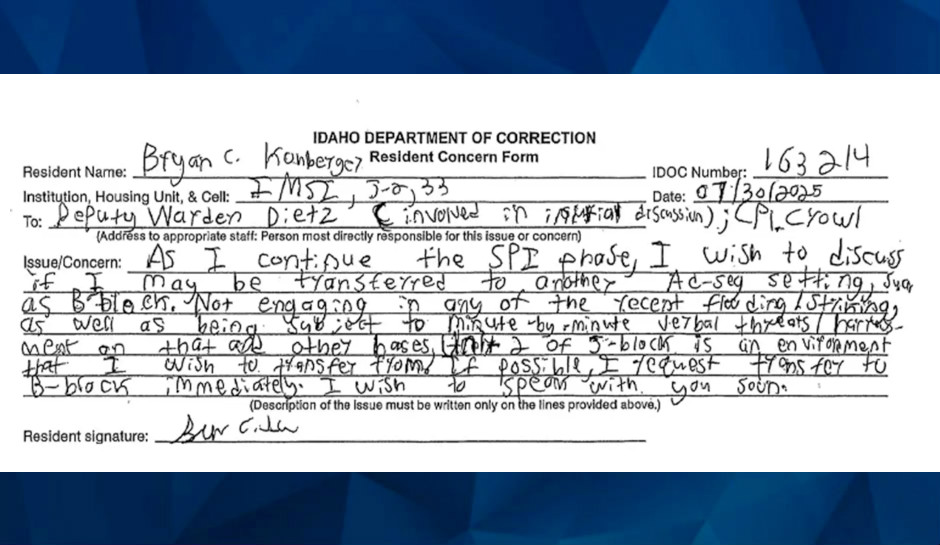 IDAHO DEPARTMENT OF CORRECTION
Resident Concern Form
Resident Name: Bryan C. Kohberger
IDOC Number: 163214
Institution, Housing Unit, & Cell: IMSI, J-2, 33
Date: 07/30/2025
To: Deputy Warden Dietz (involved in initial discussion); CPL. Crowl
(Address to appropriate staff: Person most directly responsible for this issue or concern)
Issue/Concern: As I continue the SPI phase, I wish to discuss
if I may be transferred to another Ad-seg setting, such
as B block. Not engaging in any of the recent flooding/striking,
as well as being subject to minute-by-minute verbal threats/harass-
ment on that and other bases, 2 of J-block is an environment
that I wish to transfer from. If possible, I request transfer to
B-block immediately. I wish to speak with you soon.
(Description of the issue must be written only on the lines provided above.)
Resident signature: